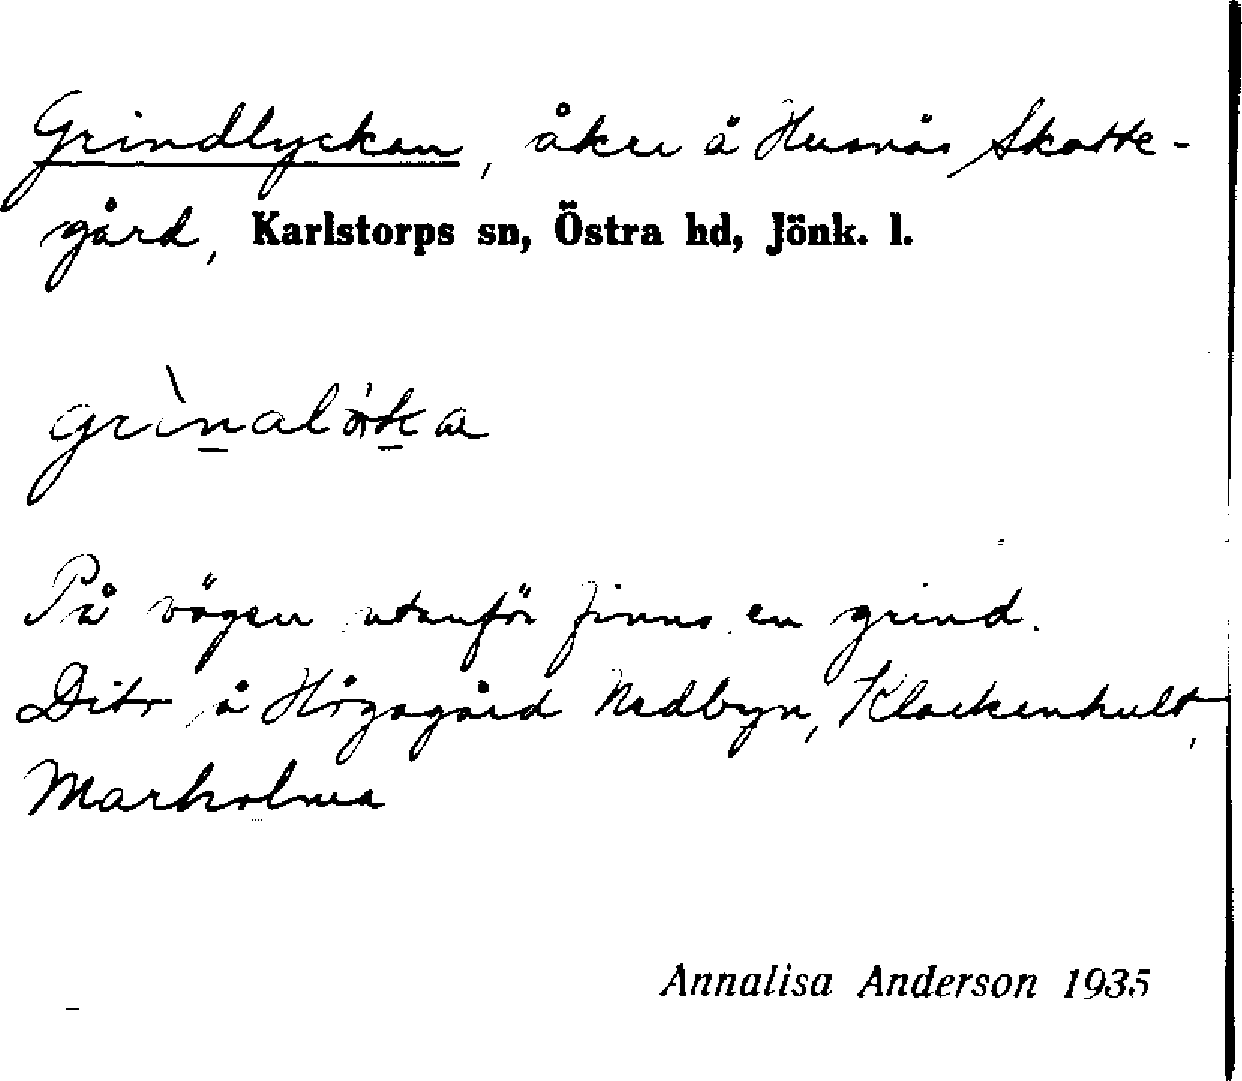 Grindlyckan, åker å Husnäs Skatte-
gård, Karlstorps sn, Östra hd, Jönk. l.
På vägen utanför finns en grind.
Dito å Högagård Nedbyn, Klackenhult,
Marholma
Annalisa Anderson 1935